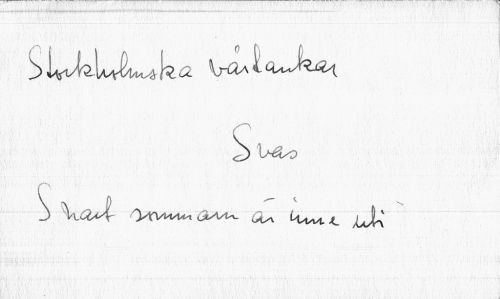 Stockholmska vårtankar
Svas
Snart sommarn är inne uti